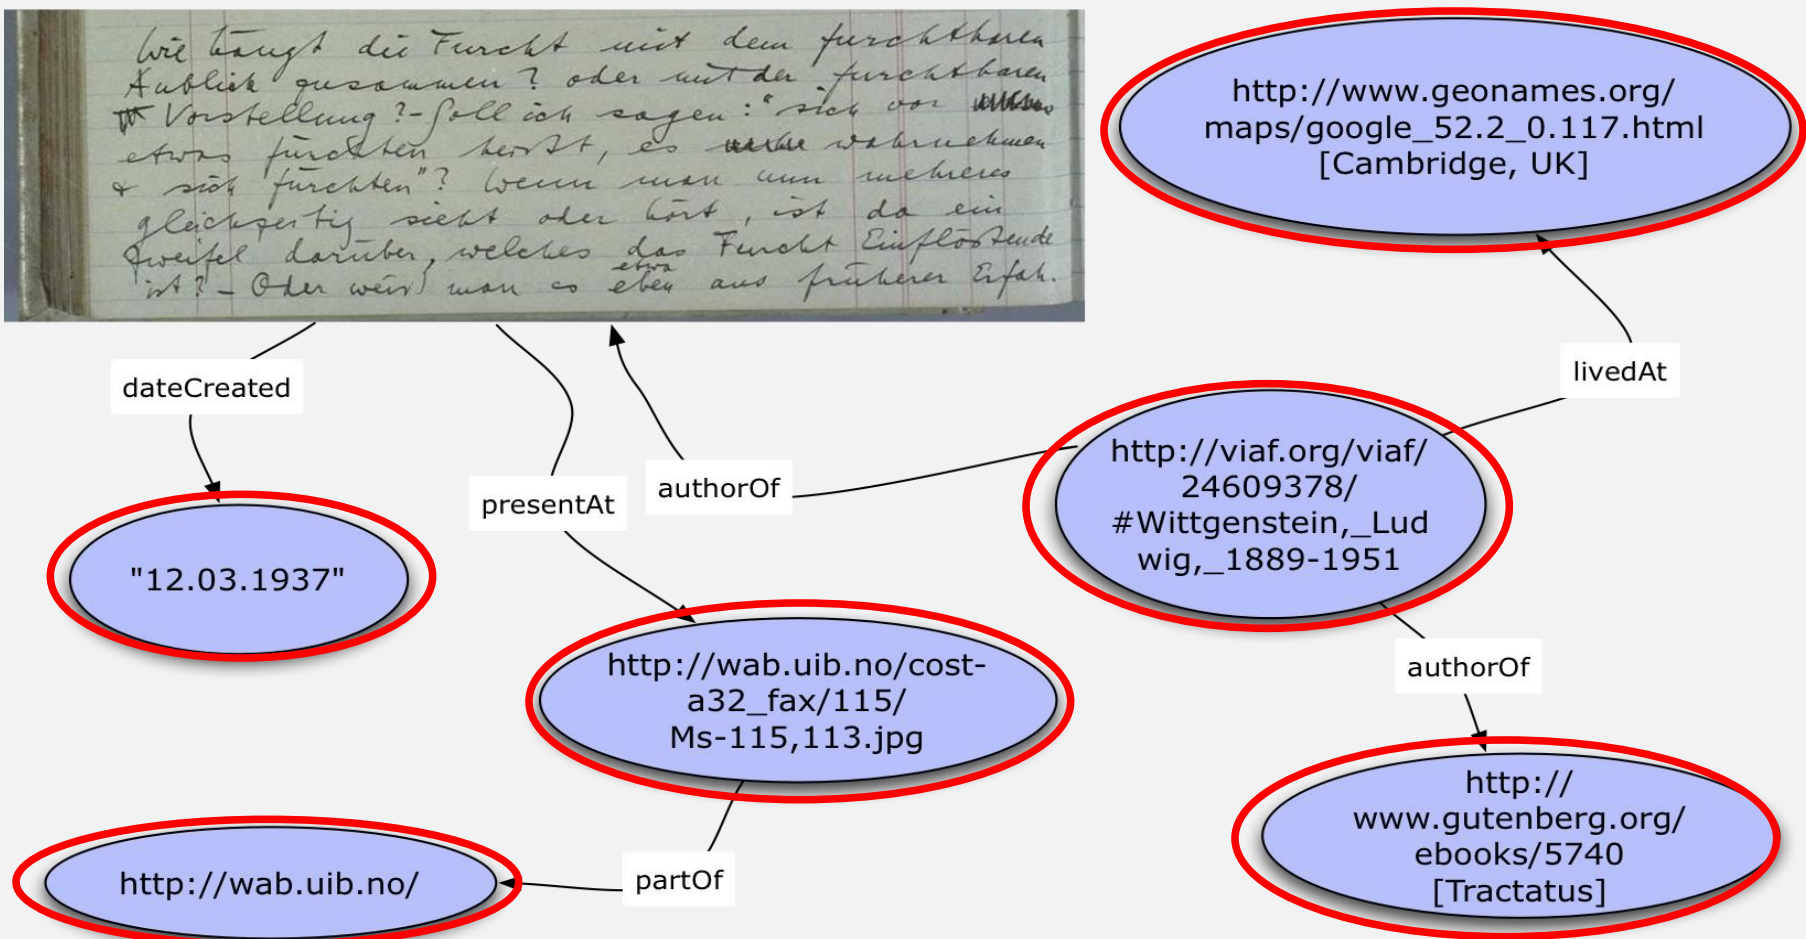 Wie hängt die Furcht mit dem furchtbaren
Anblick zusammen? oder mit der furchtbaren
Vorstellung? – Soll ich sagen: "sich vor
etwas fürchten heißt, es wahrnehmen
& sich fürchten"? Wenn man nun mehreres
gleichzeitig sieht oder hört, ist da ein
Zweifel darüber, welches das Furcht Einflößende
ist? – Oder weiß man es eben aus früherer Erfah-
etwa
http://www.geonames.org/
maps/google_52.2_0.117.html
[Cambridge, UK]
livedAt
dateCreated
presentAt
authorOf
http://viaf.org/viaf/
24609378/
#Wittgenstein,_Lud
wig,_1889-1951
"12.03.1937"
http://wab.uib.no/cost-
a32_fax/115/
Ms-115,113.jpg
authorOf
http://
www.gutenberg.org/
ebooks/5740
[Tractatus]
partOf
http://wab.uib.no/